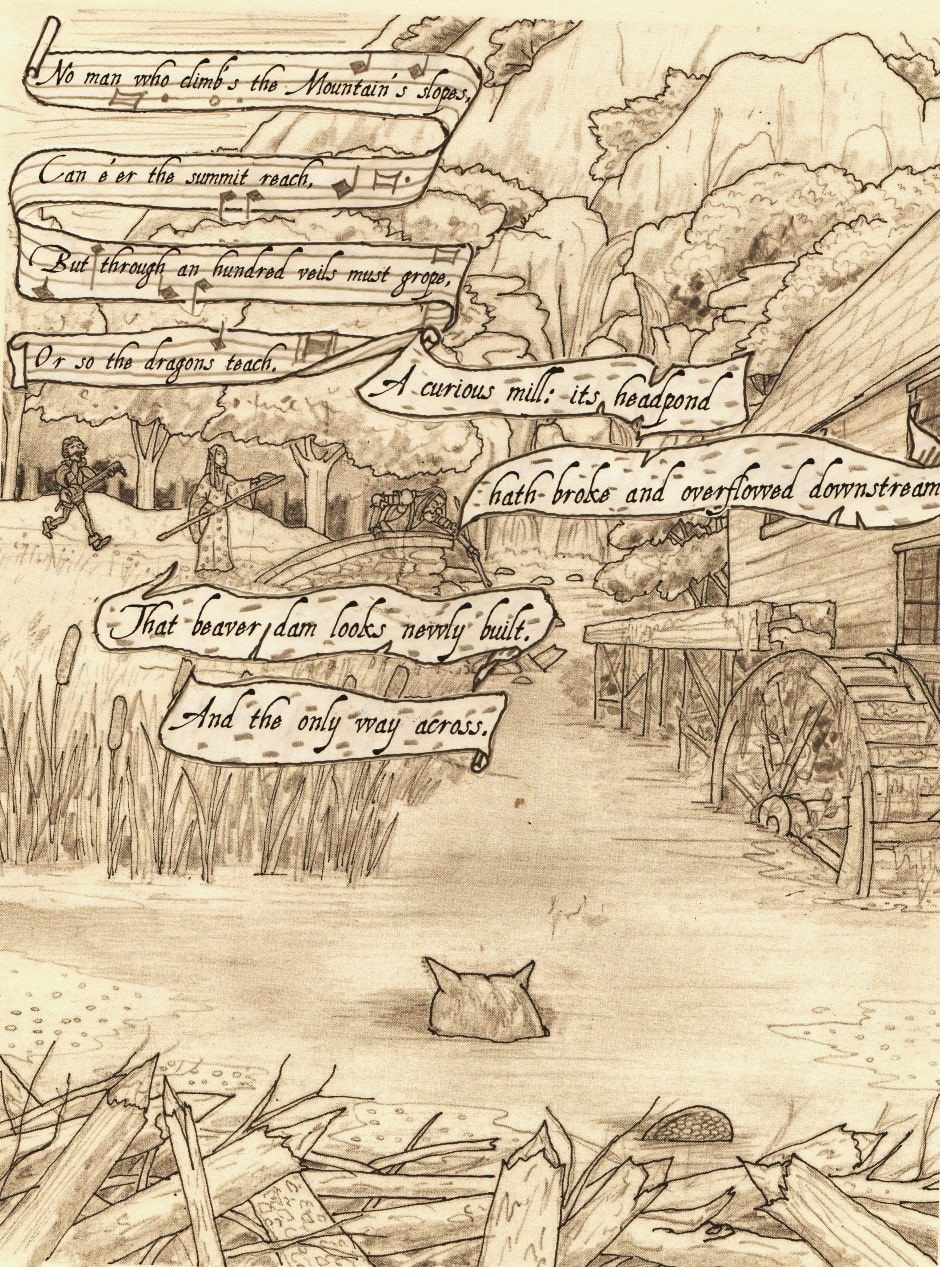 No man who climb's the Mountain's slopes,
Can e'er the summit reach,
But through an hundred veils must grope,
Or so the dragons teach.
A curious mill: its headpond
hath broke and overflowed downstream
That beaver dam looks newly built.
And the only way across.